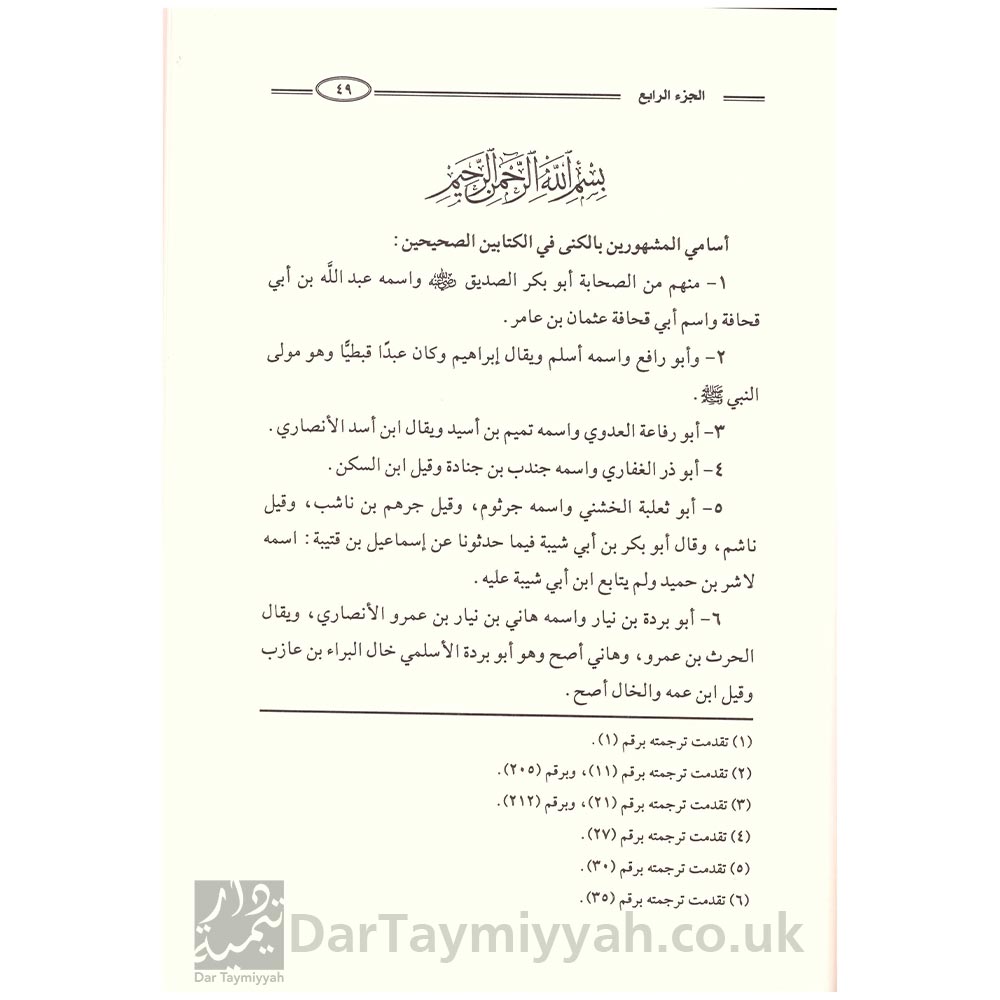 الجزء الرابع ٤٩
بِسْمِ اللَّهِ الرَّحْمَٰنِ الرَّحِيمِ
أسامي المشهورين بالكنى في الكتابين الصحيحين:
١- منهم من الصحابة أبو بكر الصديق رضي الله عنه واسمه عبد اللَّه بن أبي
قحافة واسم أبي قحافة عثمان بن عامر.
٢- وأبو رافع واسمه أسلم ويقال إبراهيم وكان عبدًا قبطيًّا وهو مولى
النبي ﷺ.
٣- أبو رفاعة العدوي واسمه تميم بن أسيد ويقال ابن أسد الأنصاري.
٤- أبو ذر الغفاري واسمه جندب بن جنادة وقيل ابن السكن.
٥- أبو ثعلبة الخشني واسمه جرثوم، وقيل جرهم بن ناشب، وقيل
ناشم، وقال أبو بكر بن أبي شيبة فيما حدثونا عن إسماعيل بن قتيبة: اسمه
لاشر بن حميد ولم يتابع ابن أبي شيبة عليه.
٦- أبو بردة بن نيار واسمه هاني بن نيار بن عمرو الأنصاري، ويقال
الحرث بن عمرو، وهاني أصح وهو أبو بردة الأسلمي خال البراء بن عازب
وقيل ابن عمه والخال أصح.
(١) تقدمت ترجمته برقم (١).
(٢) تقدمت ترجمته برقم (١١)، وبرقم (٢٠٥).
(٣) تقدمت ترجمته برقم (٢١)، وبرقم (٢١٢).
(٤) تقدمت ترجمته برقم (٢٧).
(٥) تقدمت ترجمته برقم (٣٠).
(٦) تقدمت ترجمته برقم (٣٥).
دار تيمية
Dar Taymiyyah
DarTaymiyyah.co.uk